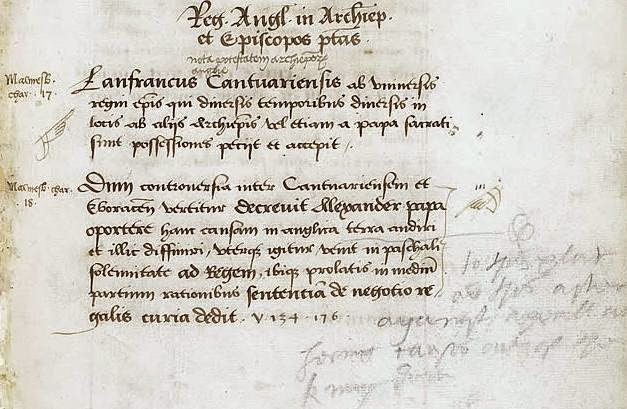 Reg. Angl. in Archiep.
et Episcopos ptas
nota potestatem archiepor
anglie
Malmesb.
char. 17.
Lanfrancus Cantuariensis ab vniuersis
regni epis qui diuersis temporibus diuersis in
locis ab aliis Archiepis vel etiam a papa sacrati
sunt possessiones petiit et accepit.
Malmesb. char.
18.
Dum controuersia inter Cantuariensem et
Eboracen vertitur decreuit Alexander papa
oportere hanc causam in anglica terra audiri
et illic diffiniri, vterq igitur venit in paschali
solemnitate ad Regem, ibiq prolatis in mediu
partium rationibus sententia de negotio re
galis curia dedit. v 134 176